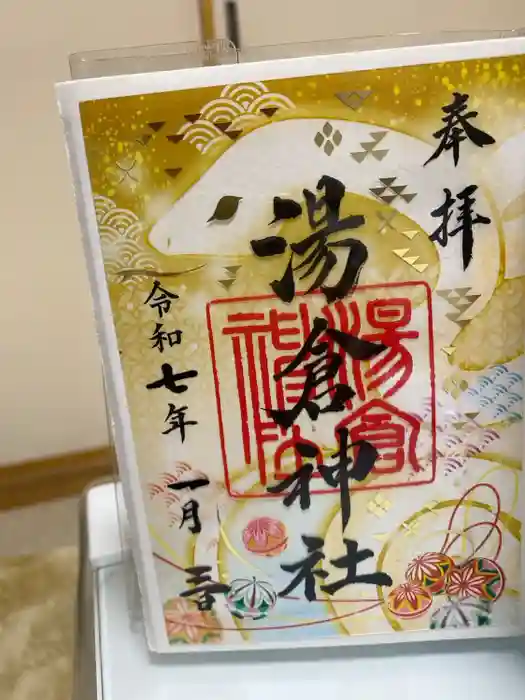 奉拝
湯倉神社
湯倉神社
令和七年 一月 三日